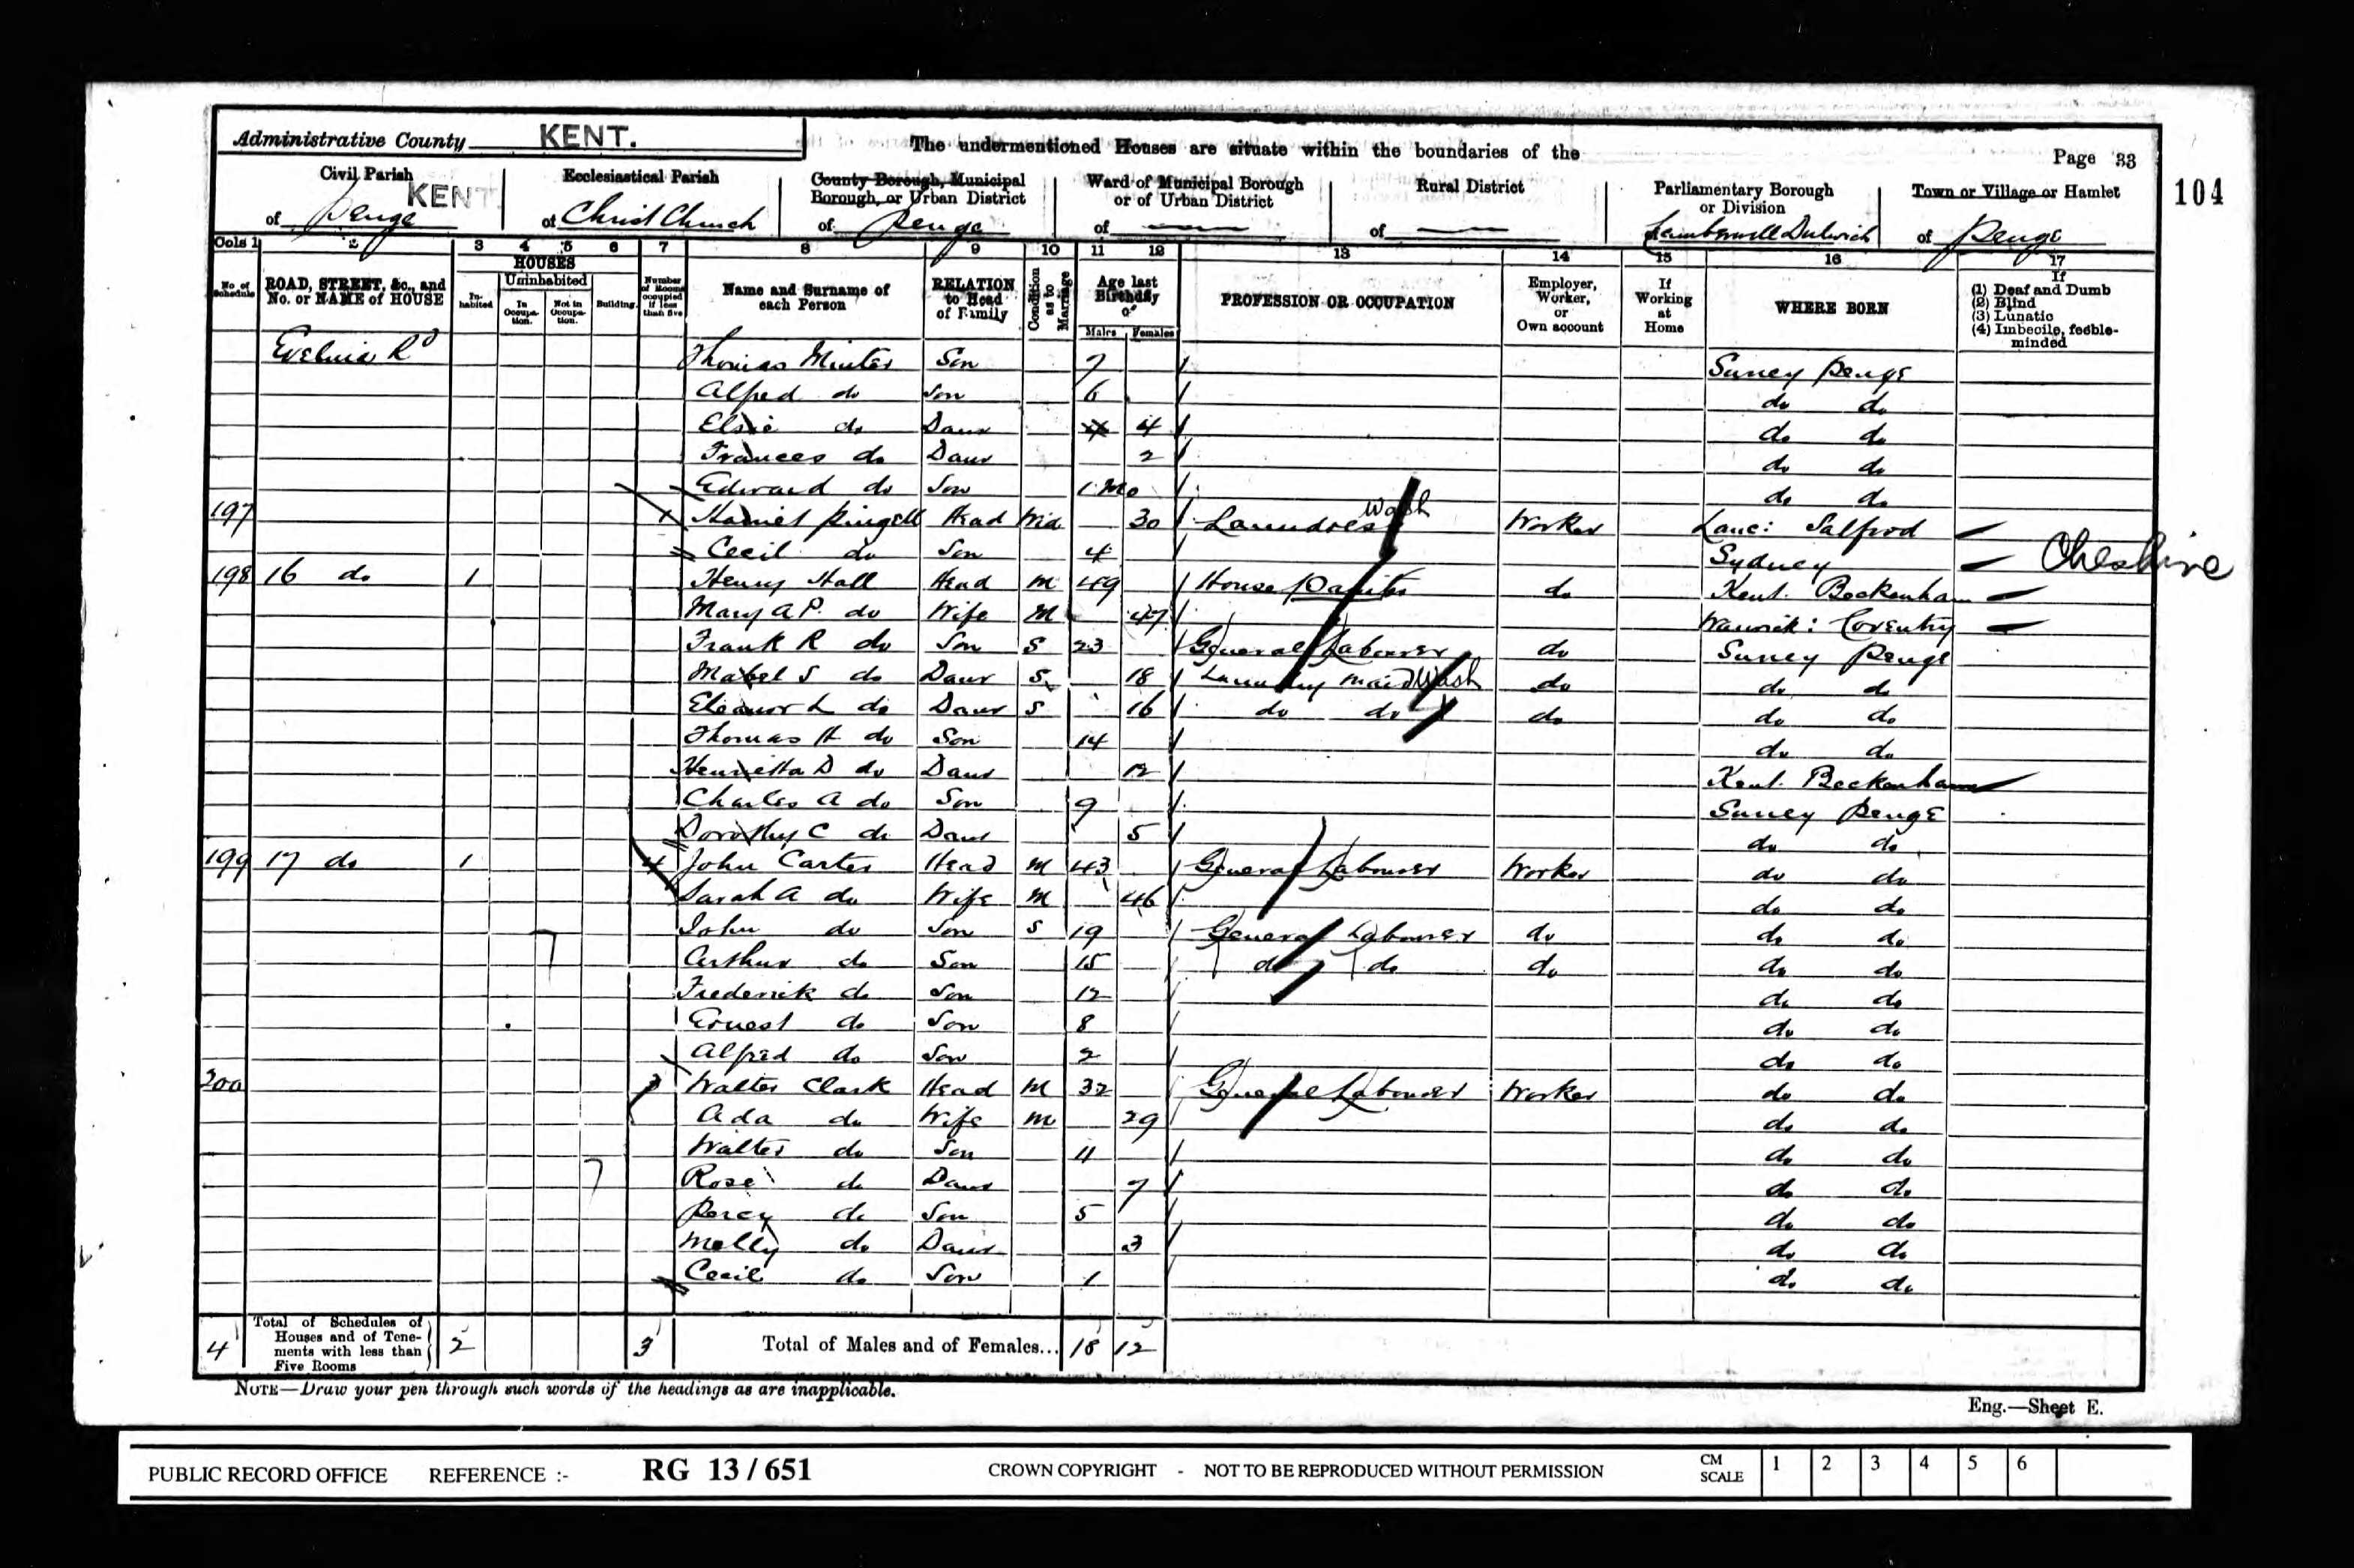 Administrative County KENT.
The undermentioned Houses are situate within the boundaries of the
Page 33
104
Civil Parish
of Penge KENT
Ecclesiastical Parish
of Christ Church
County Borough, Municipal
Borough, or Urban District
of Penge
Ward of Municipal Borough
or of Urban District
of —
Rural District
of —
Parliamentary Borough
or Division
Camberwell Dulwich
Town or Village or Hamlet
of Penge
Cols 1 2 3 4 5 6 7 8 9 10 11 12 13 14 15 16 17
No. of Schedule
ROAD, STREET, &c., and No. or NAME of HOUSE
HOUSES
Inhabited
Uninhabited
In Occupation.
Not in Occupation.
Building.
Number of Rooms occupied if less than five
Name and Surname of each Person
RELATION to Head of Family
Condition as to Marriage
Age last Birthday of
Males Females
PROFESSION OR OCCUPATION
Employer, Worker, or Own account
If Working at Home
WHERE BORN
If
(1) Deaf and Dumb
(2) Blind
(3) Lunatic
(4) Imbecile, feeble-minded
Evelina Rd Thomas Minter Son 7 Surrey Penge
Alfred do Son 6 do do
Elsie do Daur 4 do do
Frances do Daur 2 do do
Edward do Son 1 Mo do do
197 1 Harriet Pingell Head Wid 30 Laundress Wash Worker Lanc: Salford
Cecil do Son 4 Sydney Cheshire
198 16 do 1 Henry Hall Head M 49 House Painter do Kent. Beckenham
Mary A P. do Wife M 47 Warwick: Coventry
Frank R do Son S 23 General Labourer do Surrey Penge
Mabel S do Daur S 18 Laundry maid Wash do do do
Eleanor L do Daur S 16 do do do do do
Thomas H do Son 14 do do
Henrietta D do Daur 12 Kent. Beckenham
Charles A do Son 9 Surrey Penge
Dorothy C do Daur 5 do do
199 17 do 1 4 John Carter Head M 43 General Labourer Worker do do
Sarah A do Wife M 46 do do
John do Son S 19 General Labourer do do do
Arthur do Son 15 do do do do do
Frederick do Son 12 do do
Ernest do Son 8 do do
Alfred do Son 2 do do
200 3 Walter Clark Head M 32 General Labourer Worker do do
Ada do Wife M 29 do do
Walter do Son 11 do do
Rose do Daur 7 do do
Percy do Son 5 do do
Melly do Daur 3 do do
Cecil do Son 1 do do
4 Total of Schedules of Houses and of Tenements with less than Five Rooms 2 3 Total of Males and of Females... 18 12
NOTE—Draw your pen through such words of the headings as are inapplicable.
Eng.—Sheet E.
PUBLIC RECORD OFFICE REFERENCE :- RG 13/651 CROWN COPYRIGHT - NOT TO BE REPRODUCED WITHOUT PERMISSION CM SCALE 1 2 3 4 5 6